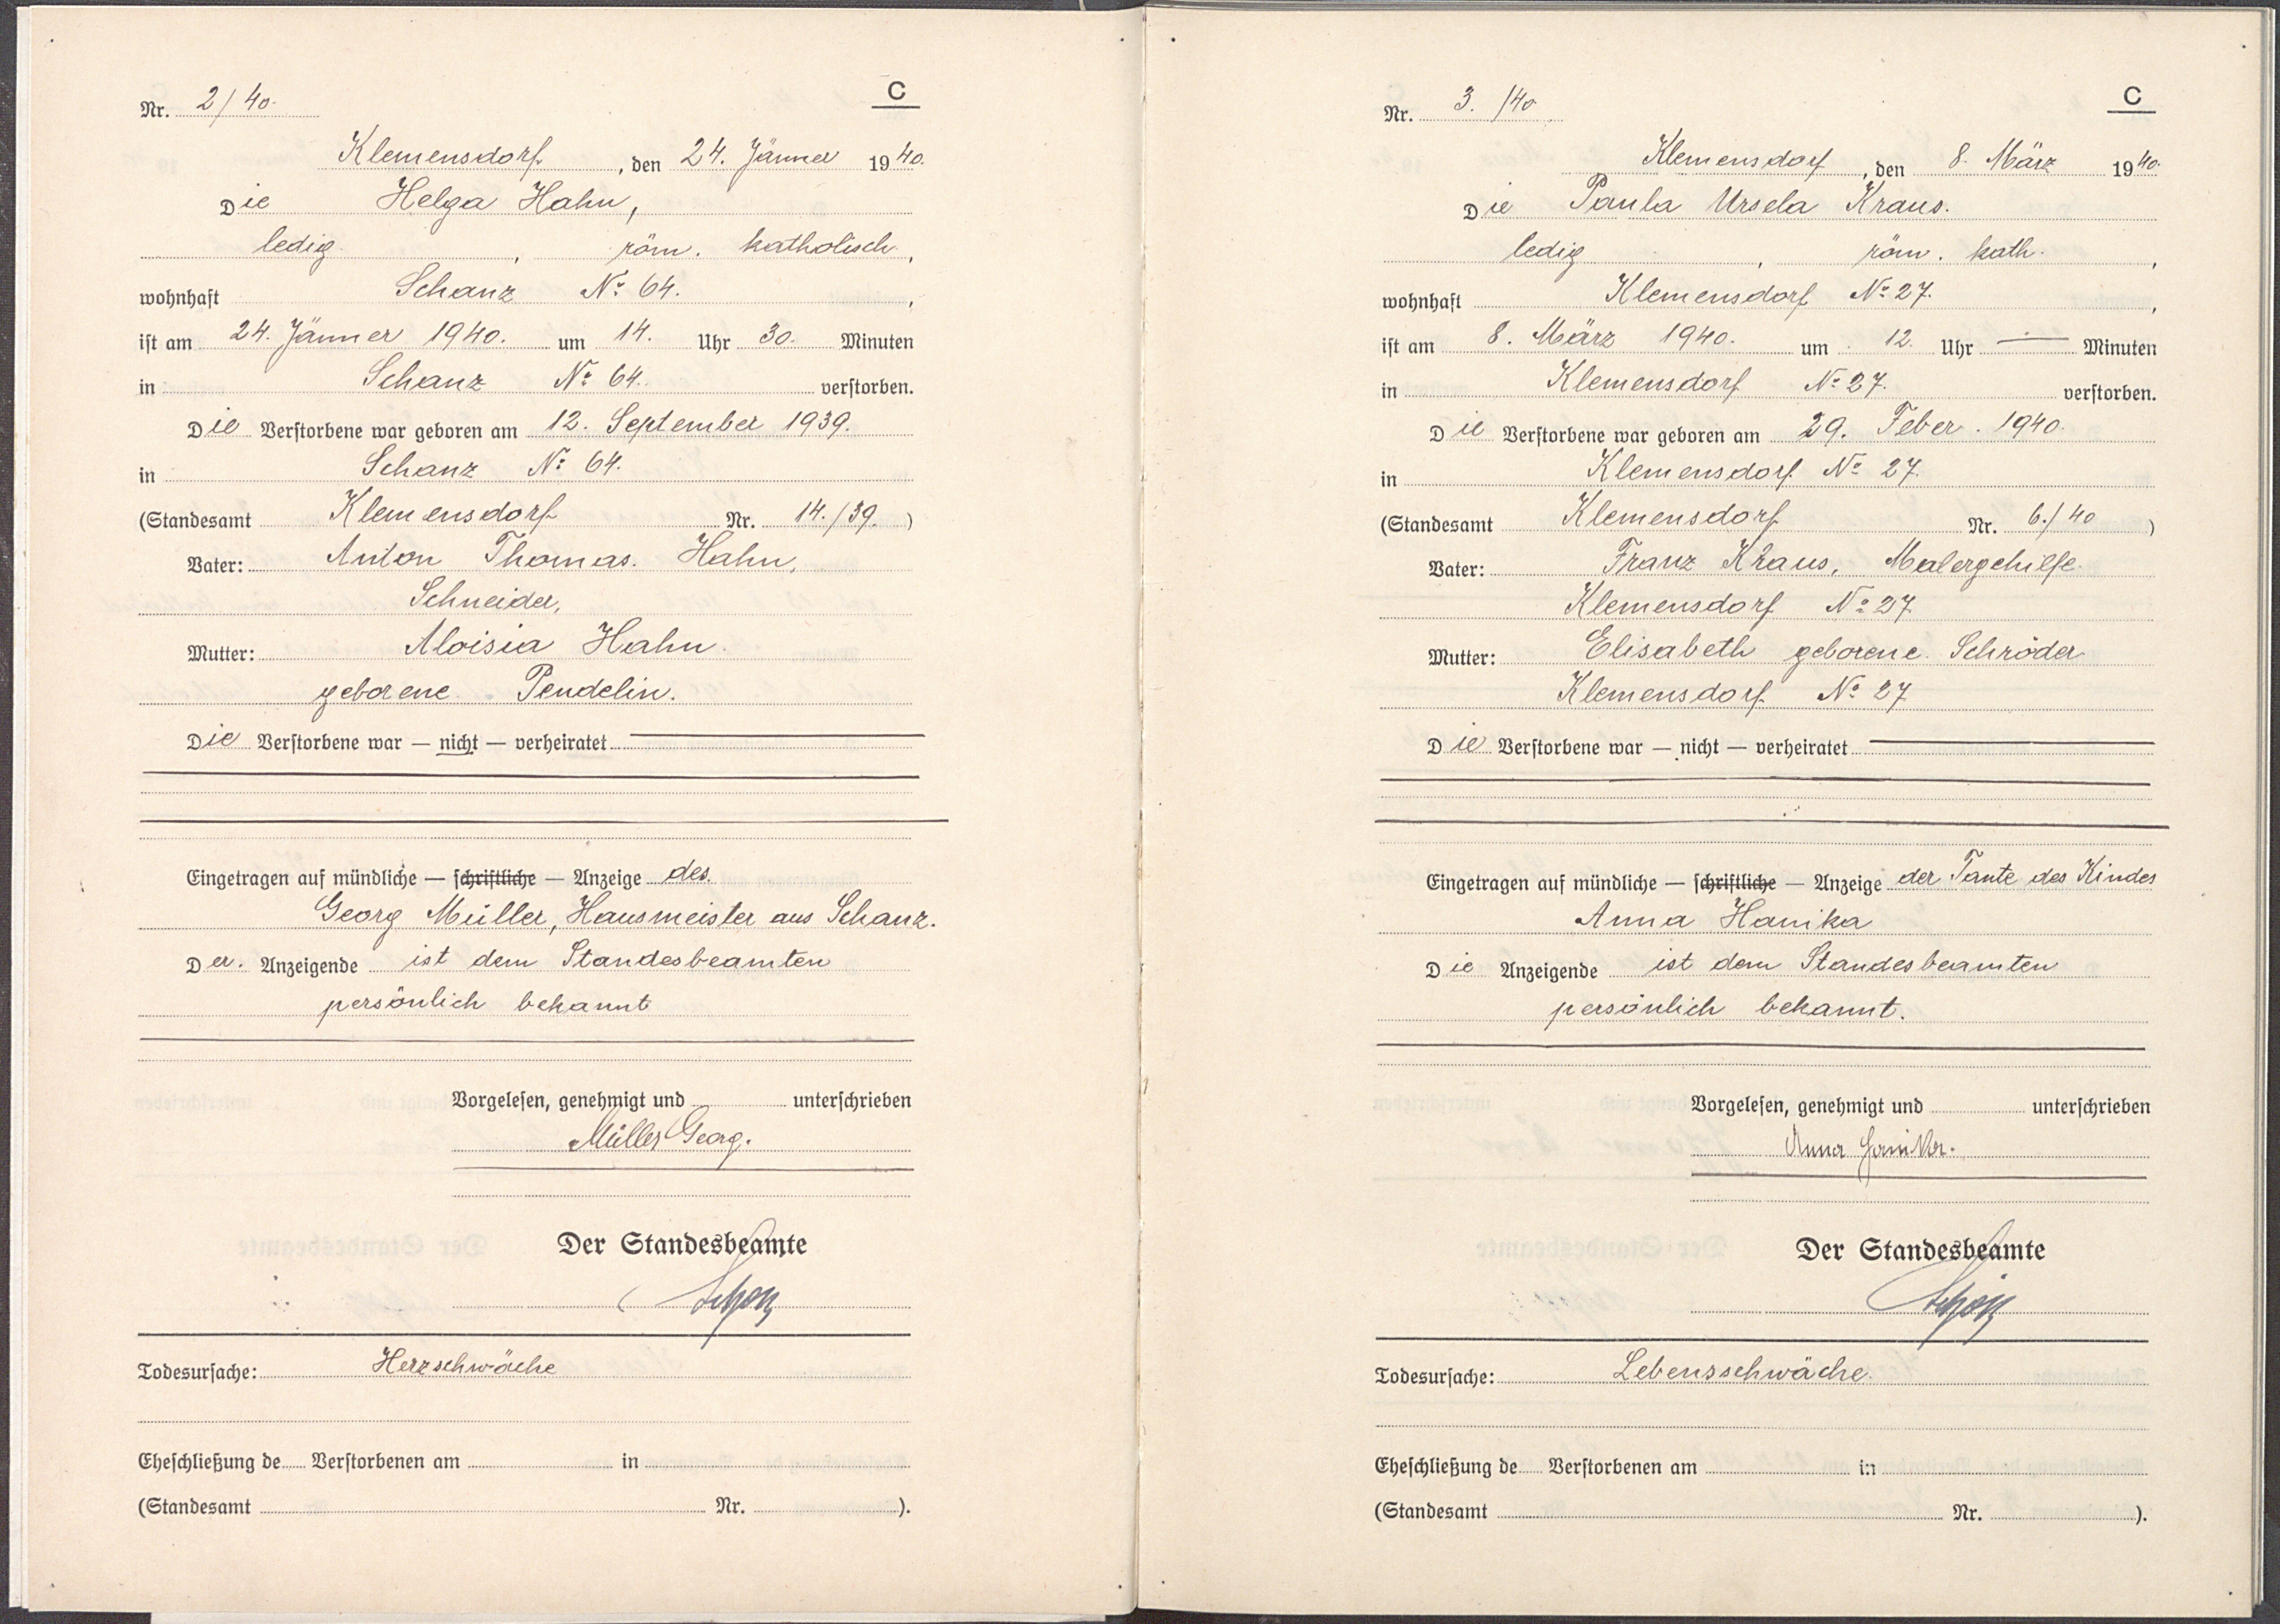 C
Nr. 2/40.
Klemensdorf, den 24. Jänner 1940.
Die Helga Hahn,
ledig, röm. katholisch,
wohnhaft Schanz No 64.,
ist am 24. Jänner 1940. um 14. Uhr 30. Minuten
in Schanz No 64. verstorben.
Die Verstorbene war geboren am 12. September 1939.
in Schanz No 64.
(Standesamt Klemensdorf Nr. 14./39.)
Vater: Anton Thomas. Hahn,
Schneider,
Mutter: Aloisia Hahn.
geborene Pendelin.
Die Verstorbene war — nicht — verheiratet
Eingetragen auf mündliche — schriftliche — Anzeige des
Georg Müller, Hausmeister aus Schanz.
Der. Anzeigende ist dem Standesbeamten
persönlich bekannt
Vorgelesen, genehmigt und unterschrieben
Müller Georg.
Der Standesbeamte
Todesursache: Herzschwäche
Eheschließung de Verstorbenen am in
(Standesamt Nr. ).
C
Nr. 3./40
Klemensdorf, den 8. März 1940.
Die Paula Ursela Kraus.
ledig, röm. kath.,
wohnhaft Klemensdorf No 27.,
ist am 8. März 1940. um 12. Uhr — Minuten
in Klemensdorf No 27. verstorben.
Die Verstorbene war geboren am 29. Feber. 1940.
in Klemensdorf No 27.
(Standesamt Klemensdorf Nr. 6./40)
Vater: Franz Kraus, Malergehilfe.
Klemensdorf No 27
Mutter: Elisabeth geborene Schröder
Klemensdorf No 27
Die Verstorbene war — nicht — verheiratet
Eingetragen auf mündliche — schriftliche — Anzeige der Tante des Kindes
Anna Hanika
Die Anzeigende ist dem Standesbeamten
persönlich bekannt.
Vorgelesen, genehmigt und unterschrieben
Anna Hanika.
Der Standesbeamte
Todesursache: Lebensschwäche.
Eheschließung de Verstorbenen am in
(Standesamt Nr. ).